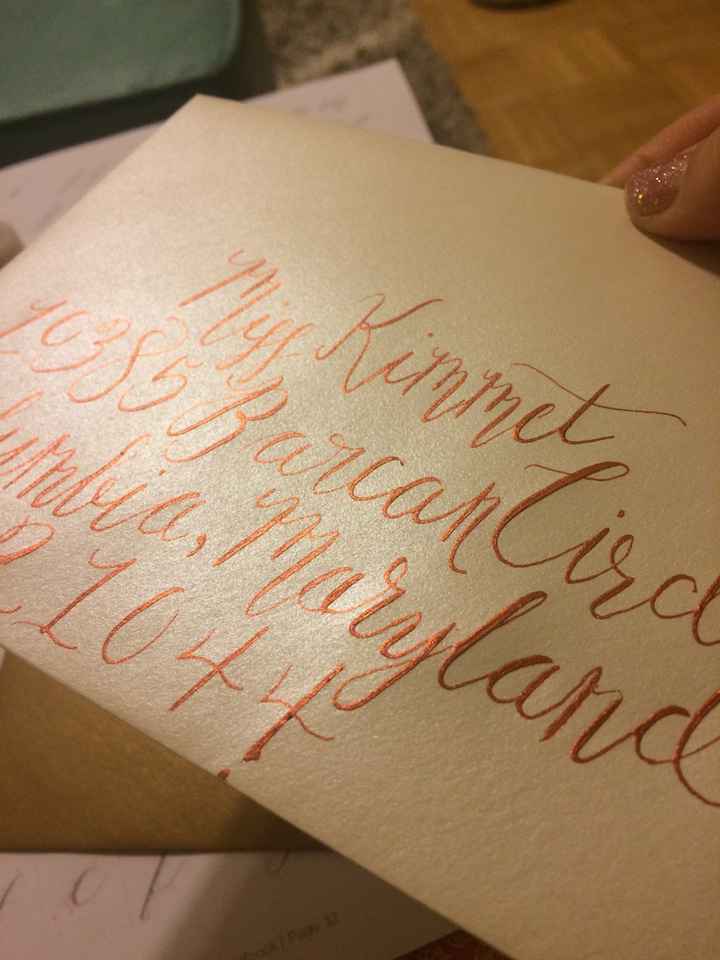 Miss Kimmet
10385 Barcan Circl
lumbia, Maryland
21044
/ Page